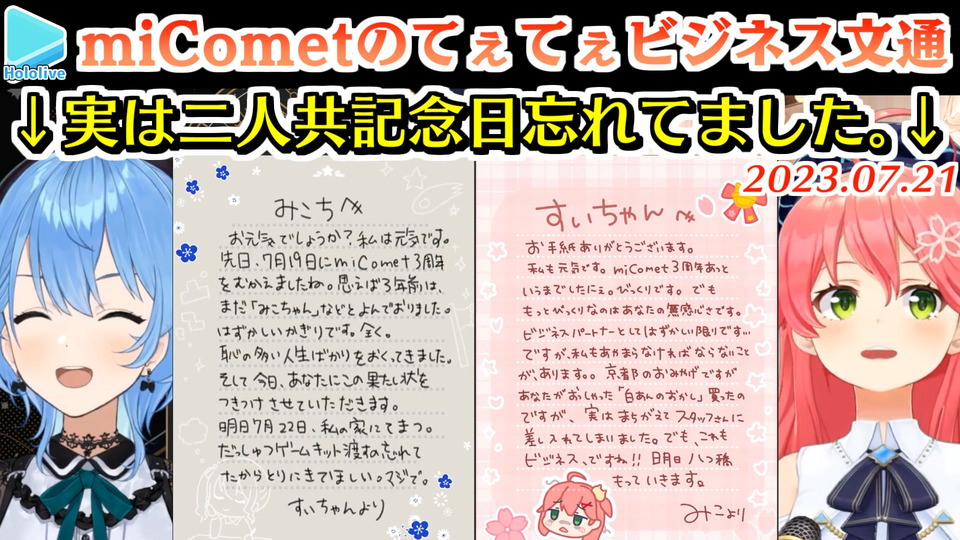 Hololive
miCometのてぇてぇビジネス文通
↓実は二人共記念日忘れてました。↓
2023.07.21
みこちへ
お元気でしょうか?私は元気です。
先日、7月19日にmiComet3周年
をむかえましたね。思えば3年前は、
まだ「みこちゃん」などとよんでおりました。
はずかしいかぎりです。全く。
恥の多い人生ばかりをおくってきました。
そして今日、あなたにこの果たし状を
つきつけさせていただきます。
明日7月22日、私の家にてまつ。
だっしゅつゲームキット渡すの忘れて
たからとりにきてほしい。マジで。
すいちゃんより
すいちゃんへ
お手紙ありがとうございます。
私も元気です。miComet3周年あっと
いうまでしたにぇ。びっくりです。でも
もっとびっくりなのはあなたの無感心さです。
ビジネスパートナーとしてはずかしい限りです…
ですが、私もあやまらなければならないこと
が、あります。。京都のおみやげですが
あなたがおしゃった「白あんのおかし」買ったの
ですが、実はまちがえてスタッフさんに
差し入れてしまいました。でも、これも
ビジネス、ですね!!明日八つ橋、
もっていきます。
みこより